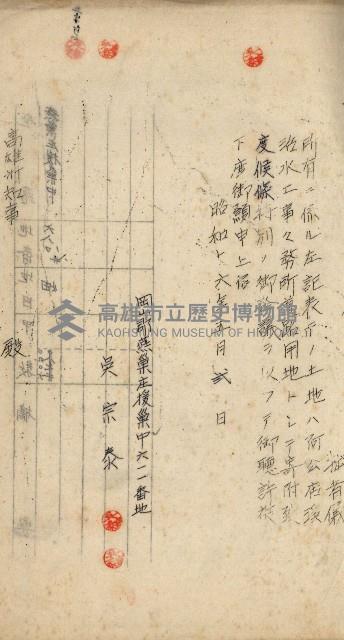 拙者儀
所有ニ係ル左記表示ノ土地ハ阿公店溪
治水工事々務所道路用地トシテ寄附致
度候條特別ノ御詮議ヲ以フテ御聽許被
下度御願申上候
昭和十六年 月 弍日
岡山郡燕巢庄援巢中六一一番地
吳宗泰
高雄州知事 殿
高雄市立歷史博物館
KAOHSIUNG MUSEUM OF HISTORY